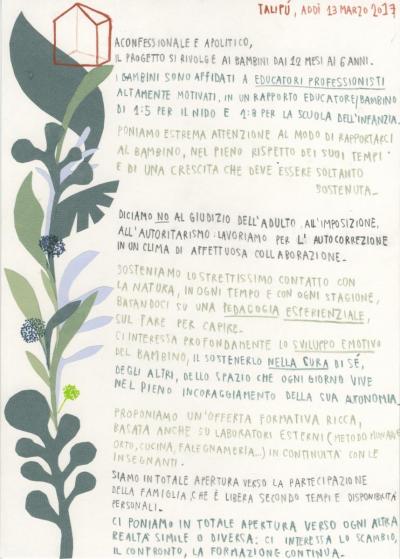 TALIPÚ, ADDÌ 13 MARZO 2017
ACONFESSIONALE E APOLITICO,
IL PROGETTO SI RIVOLGE AI BAMBINI DAI 12 MESI AI 6 ANNI.
I BAMBINI SONO AFFIDATI A EDUCATORI PROFESSIONISTI
ALTAMENTE MOTIVATI, IN UN RAPPORTO EDUCATORE/BAMBINO
DI 1:5 PER IL NIDO E 1:8 PER LA SCUOLA DELL'INFANZIA.
PONIAMO ESTREMA ATTENZIONE AL MODO DI RAPPORTARCI
AL BAMBINO, NEL PIENO RISPETTO DEI SUOI TEMPI
E DI UNA CRESCITA CHE DEVE ESSERE SOLTANTO
SOSTENUTA_
DICIAMO NO AL GIUDIZIO DELL'ADULTO, ALL'IMPOSIZIONE,
ALL'AUTORITARISMO: LAVORIAMO PER L' AUTOCORREZIONE
IN UN CLIMA DI AFFETTUOSA COLLABORAZIONE_
SOSTENIAMO LO STRETTISSIMO CONTATTO CON
LA NATURA, IN OGNI TEMPO E CON OGNI STAGIONE,
BASANDOCI SU UNA PEDAGOGIA ESPERIENZIALE,
SUL FARE PER CAPIRE_
CI INTERESSA PROFONDAMENTE LO SVILUPPO EMOTIVO
DEL BAMBINO, IL SOSTENERLO NELLA CURA DI SÉ,
DEGLI ALTRI, DELLO SPAZIO CHE OGNI GIORNO VIVE
NEL PIENO INCORAGGIAMENTO DELLA SUA AUTONOMIA_
PROPONIAMO UN'OFFERTA FORMATIVA RICCA,
BASATA ANCHE SU LABORATORI ESTERNI (METODO MUNARI,
ORTO, CUCINA, FALEGNAMERIA...) IN CONTINUITÀ CON LE
INSEGNANTI.
SIAMO IN TOTALE APERTURA VERSO LA PARTECIPAZIONE
DELLA FAMIGLIA, CHE È LIBERA SECONDO TEMPI E DISPONIBILITÀ
PERSONALI_
CI PONIAMO IN TOTALE APERTURA VERSO OGNI ALTRA
REALTÀ SIMILE O DIVERSA: CI INTERESSA LO SCAMBIO,
IL CONFRONTO, LA FORMAZIONE CONTINUA_